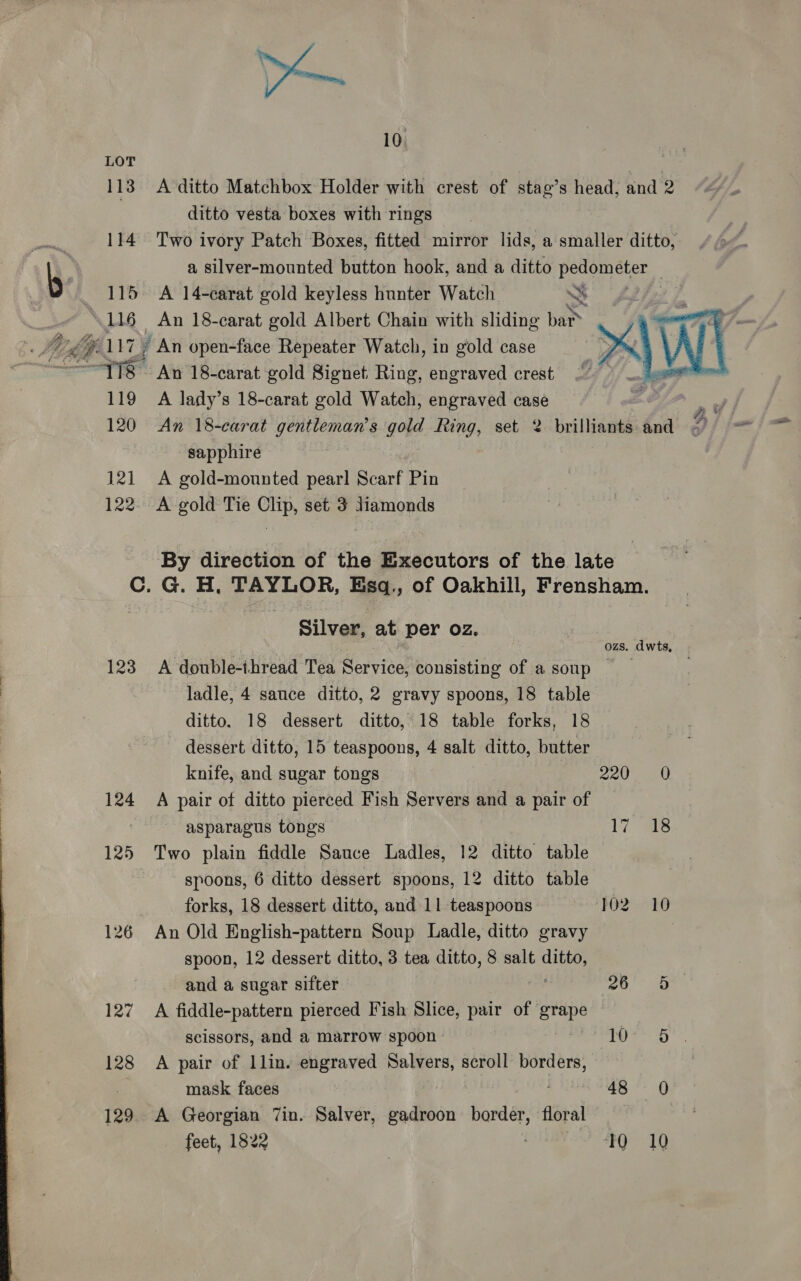 10
LOT
113 A ditto Matchbox Holder with crest of stag's head, and 2
ditto vesta boxes with rings
114 Two ivory Patch Boxes, fitted mirror lids, a smaller ditto,
a silver-mounted button hook, and a ditto pedometer
115 A 14-carat gold keyless hunter Watch
116 An 18-carat gold Albert Chain with sliding bar
117 An open-face Repeater Watch, in gold case
118 An 18-carat gold Signet Ring, engraved crest
119 A lady's 18-carat gold Watch, engraved case
120 An 18-carat gentleman's gold Ring, set 2 brilliants and
sapphire
121 A gold-mounted pearl Scarf Pin
122 A gold Tie Clip, set 3 diamonds
By direction of the Executors of the late
C. G. H. TAYLOR, Esq., of Oakhill, Frensham.
Silver, at per oz.
ozs. dwts.
123 A double-thread Tea Service, consisting of a soup
ladle, 4 sauce ditto, 2 gravy spoons, 18 table
ditto. 18 dessert ditto, 18 table forks, 18
dessert ditto, 15 teaspoons, 4 salt ditto, butter
knife, and sugar tongs 220 0
124 A pair of ditto pierced Fish Servers and a pair of
asparagus tongs 17 18
125 Two plain fiddle Sauce Ladles, 12 ditto table
spoons, 6 ditto dessert spoons, 12 ditto table
forks, 18 dessert ditto, and 11 teaspoons 102 10
126 An Old English-pattern Soup Ladle, ditto gravy
spoon, 12 dessert ditto, 3 tea ditto, 8 salt ditto,
and a sugar sifter 26 5
127 A fiddle-pattern pierced Fish Slice, pair of grape
scissors, and a marrow spoon 10 5
128 A pair of 11in. engraved Salvers, scroll borders,
mask faces 48 0
129 A Georgian 7in. Salver, gadroon border, floral
feet, 1822 10 10